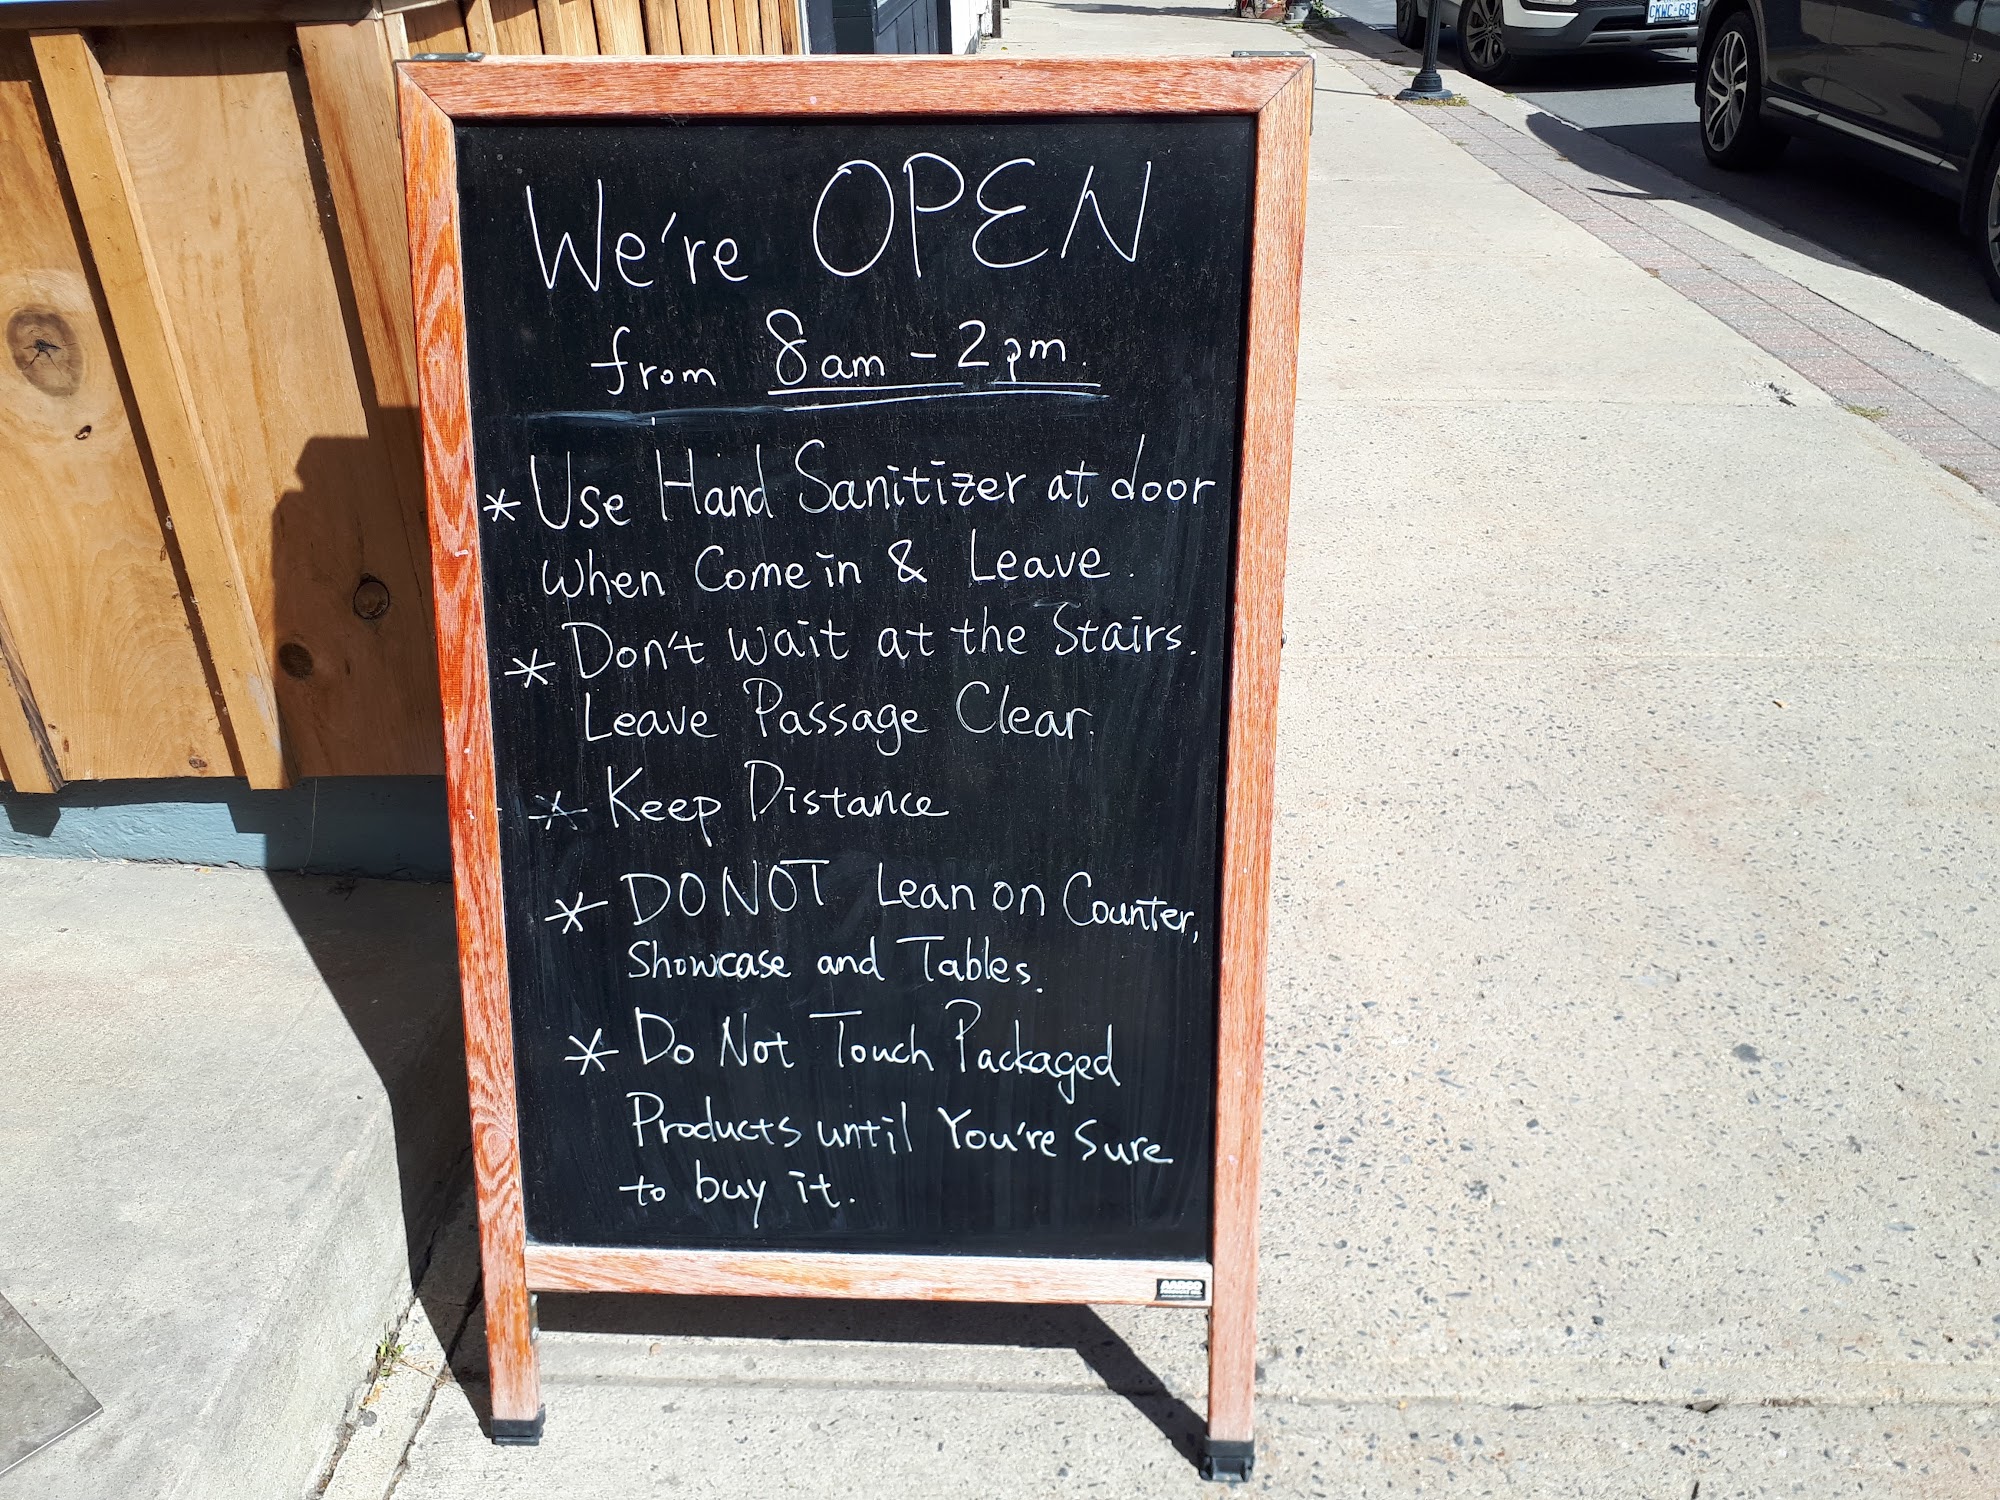 We're OPEN
from 8am - 2pm.
* Use Hand Sanitizer at door
when Come in & Leave.
* Don't wait at the Stairs.
Leave Passage Clear.
* Keep Distance
* DO NOT Lean on Counter,
Showcase and Tables.
* Do Not Touch Packaged
Products until You're Sure
to buy it.
CKWC-683